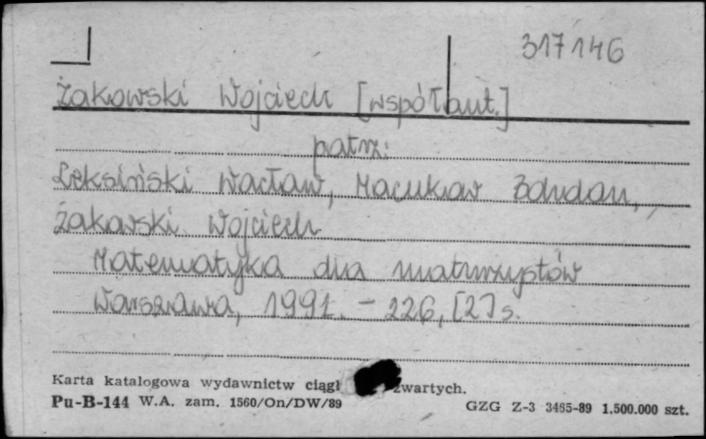 317146
Żakowski Wojciech [współaut.]
patrz:
Leksiński Wacław, Macukow Bohdan,
Żakowski Wojciech
Matematyka dla maturzystów
Warszawa, 1991. - 226, [2] s.
Karta katalogowa wydawnictw ciągł zwartych.
Pu-B-144 W.A. zam. 1560/On/DW/89
GZG Z-3 3485-89 1.500.000 szt.